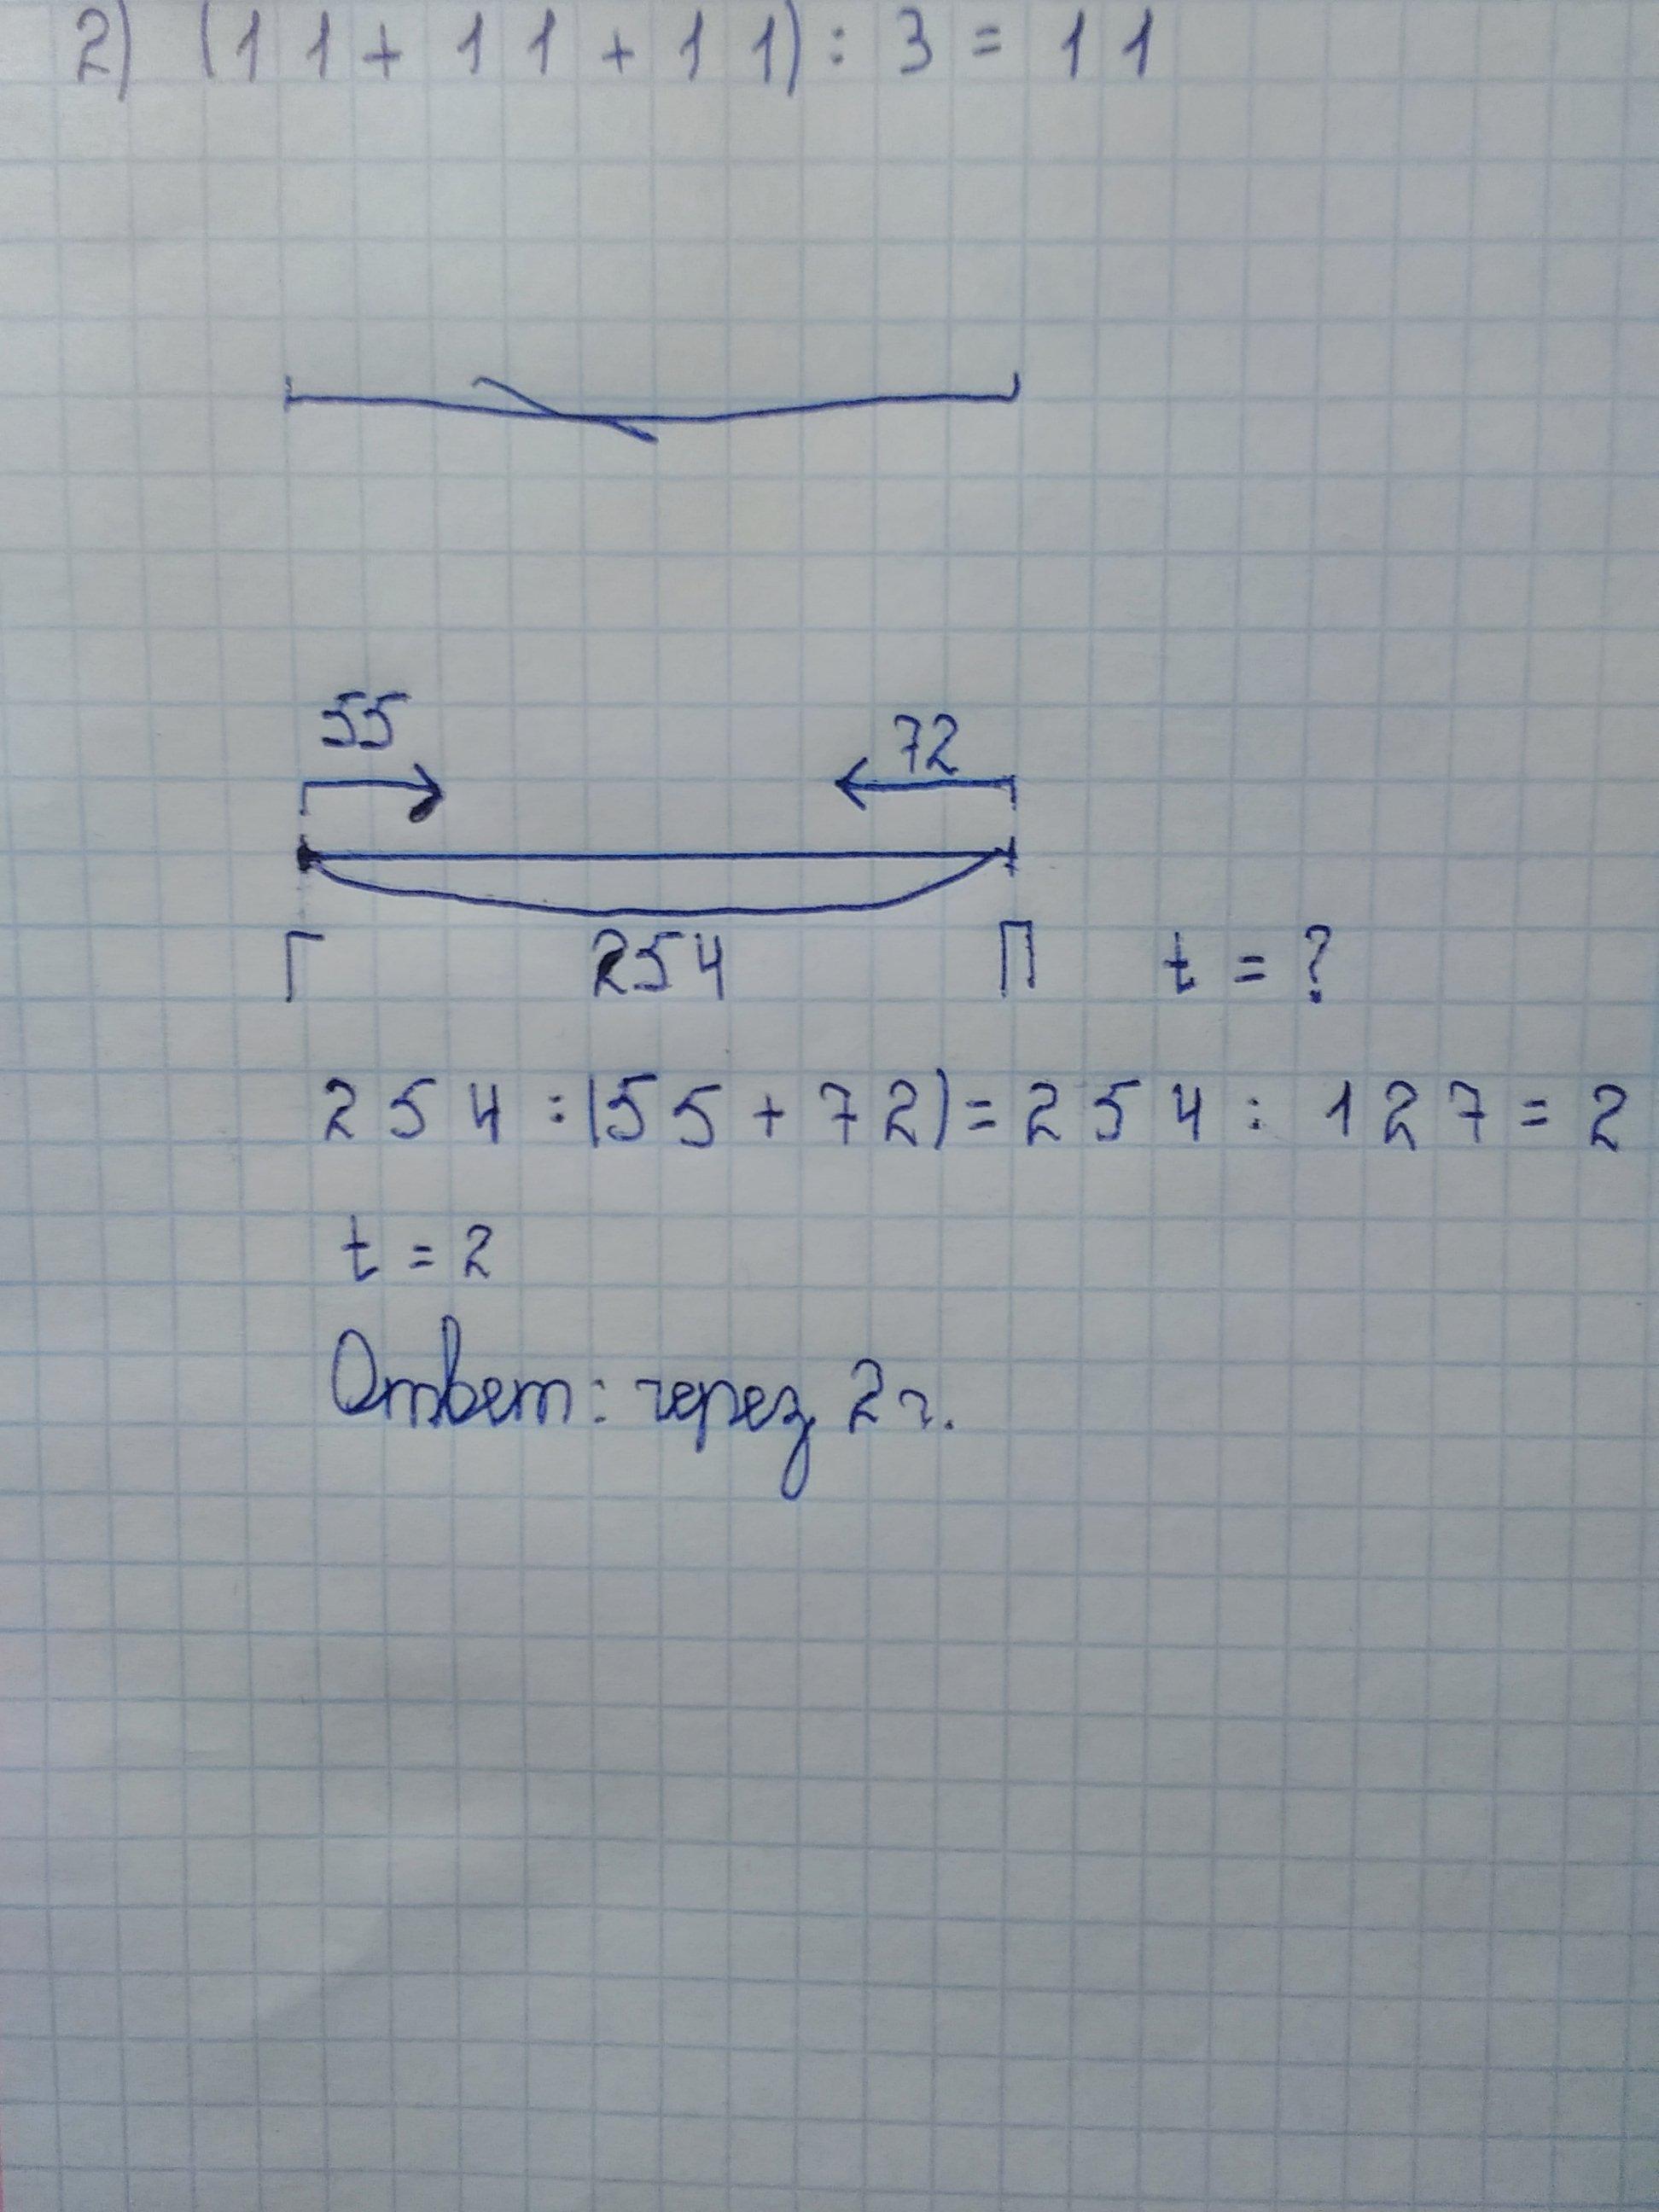 2) (11+11+11):3=11
55 72
Г 254 П t=?
254:(55+72)=254:127=2
t=2
Ответ: через 2ч.